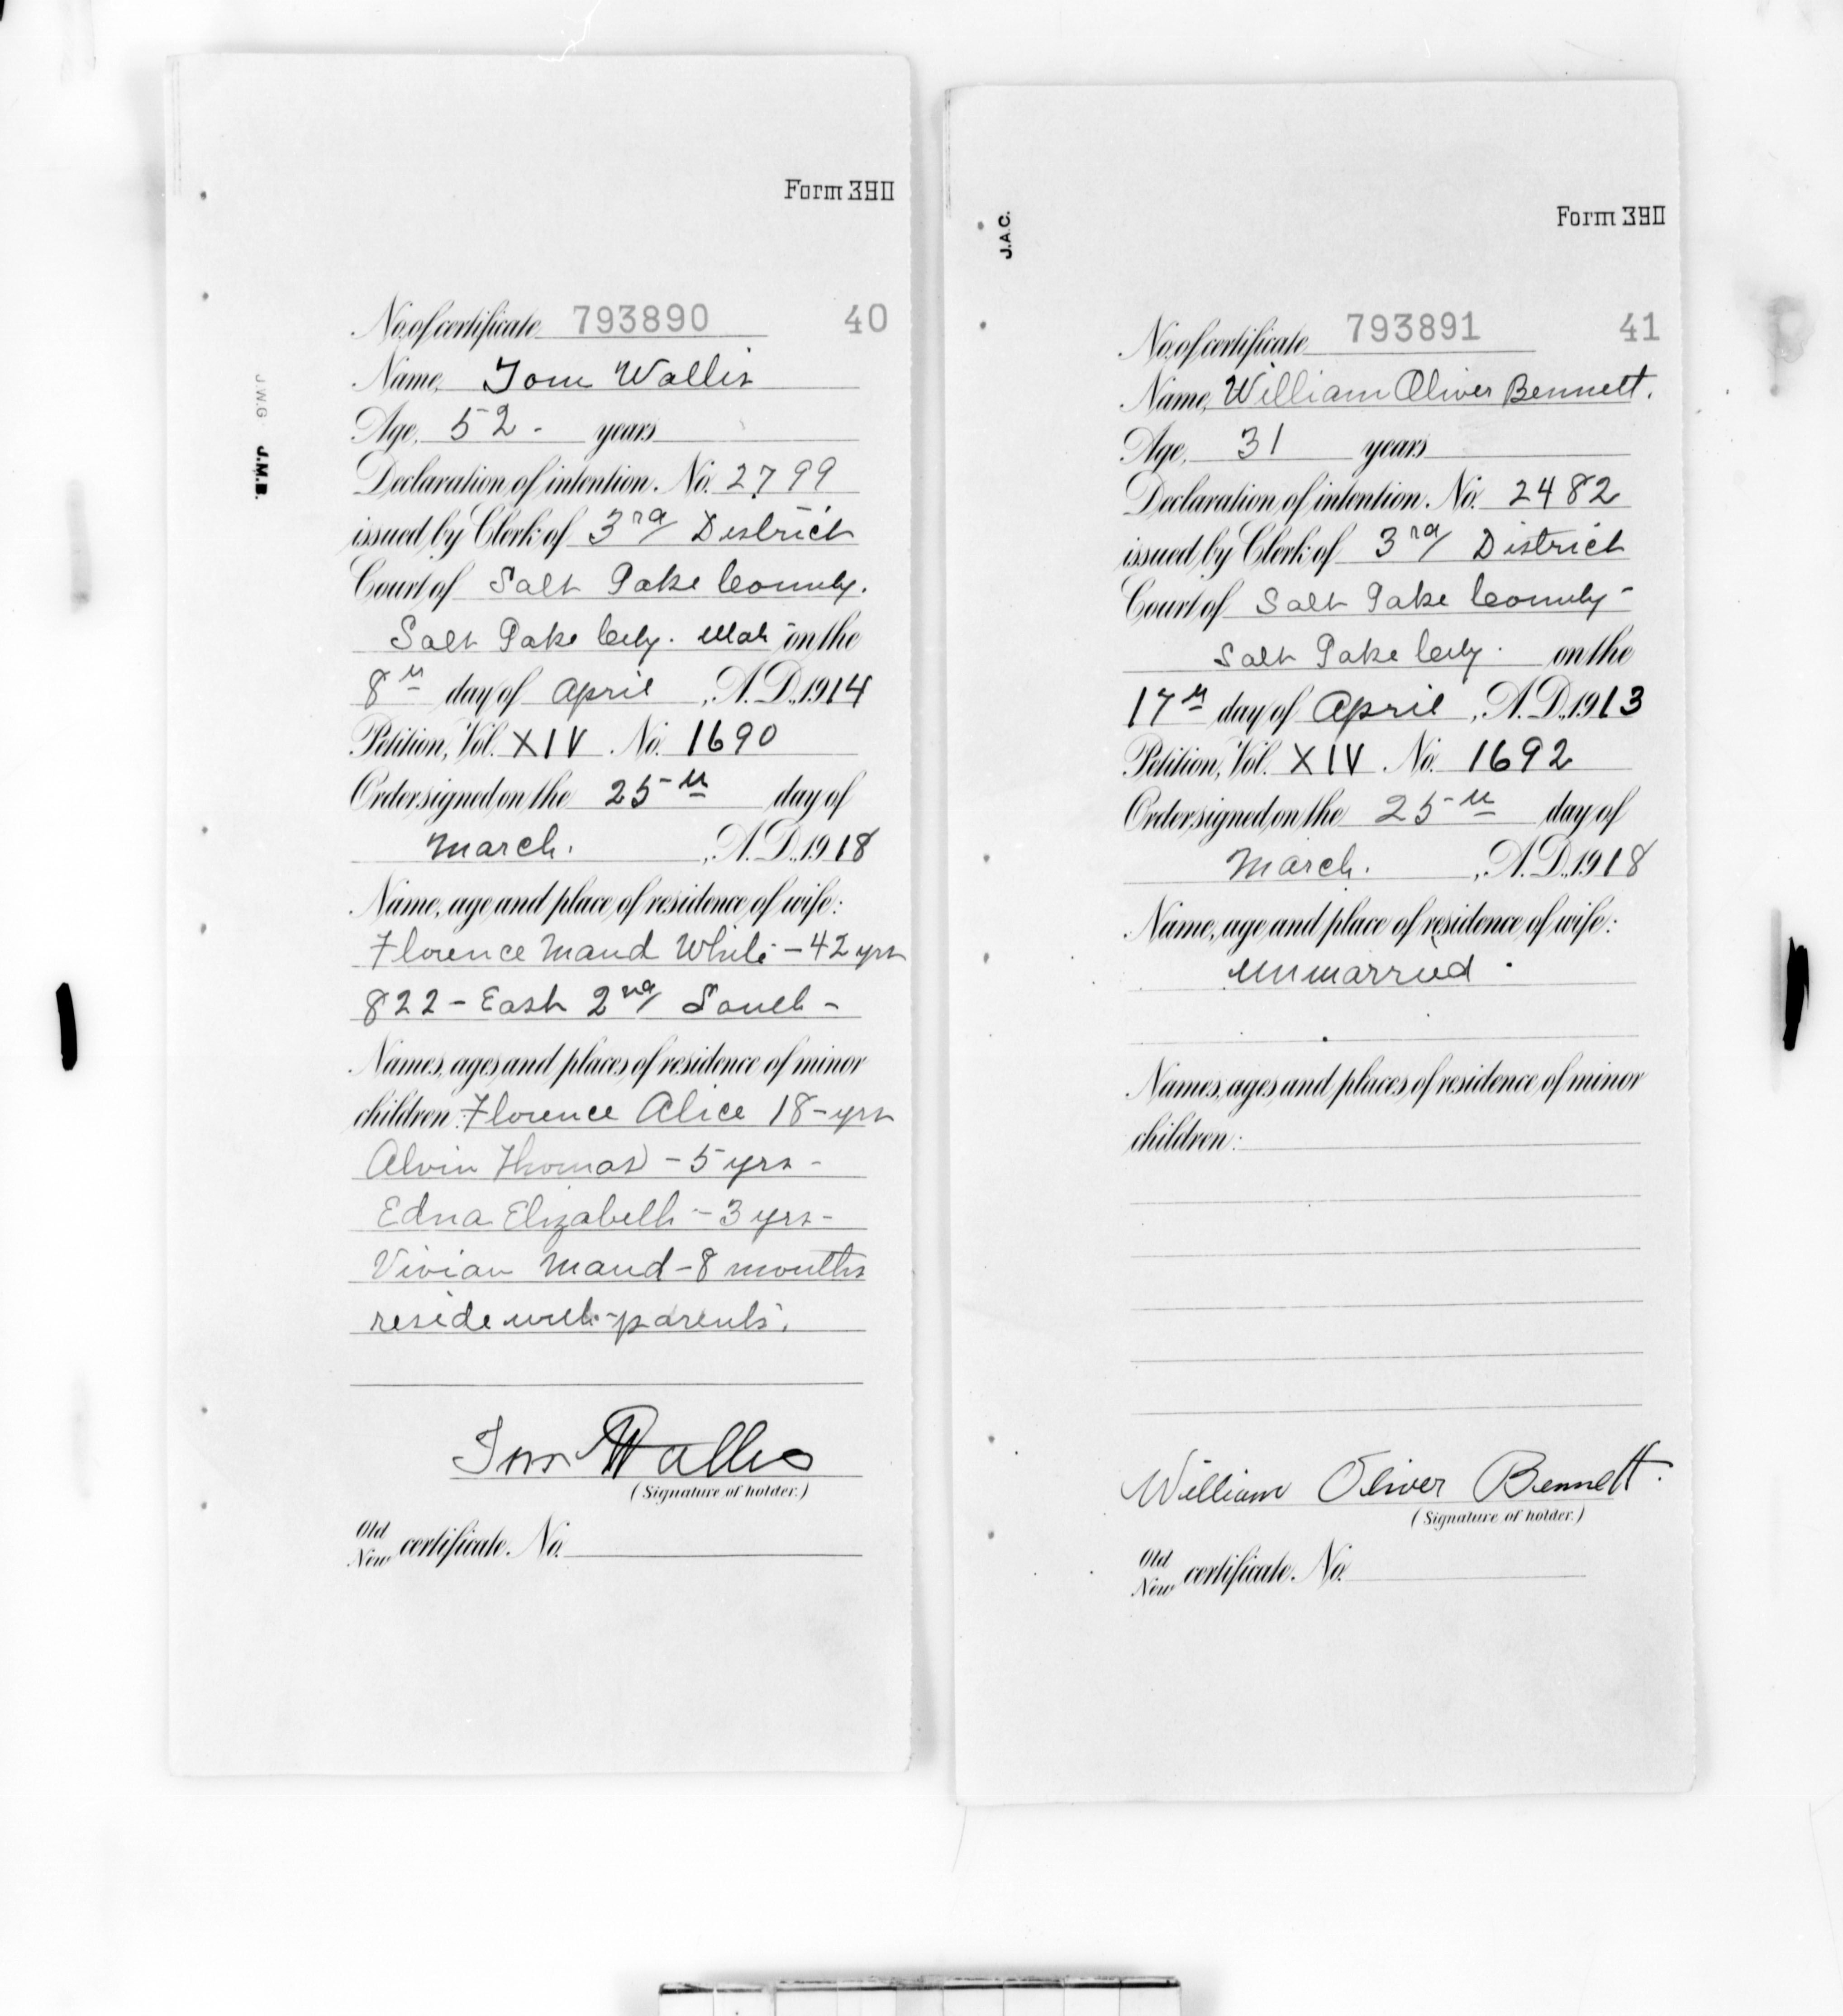 Form 390
No. of certificate 793890 40
Name, Tom Wallis
Age, 52 - years
Declaration of intention. No. 2799
issued by Clerk of 3rd District
Court of Salt Lake County.
Salt Lake City. Utah on the
8th day of April, A.D., 1914
Petition, Vol. XIV No. 1690
Order signed on the 25th day of
March. , A.D., 1918
Name, age and place of residence of wife:
Florence Maud White - 42 yrs
822 - East 2nd South -
Names, ages and places of residence of minor
children: Florence Alice 18 - yrs
Alvin Thomas - 5 yrs -
Edna Elizabeth - 3 yrs -
Vivian Maud - 8 months
reside with - parents.
Tom Wallis
(Signature of holder.)
Old
New certificate. No.
J.W.G. J.M.B.
J.A.C.
Form 390
No. of certificate 793891 41
Name, William Oliver Bennett.
Age, 31 years
Declaration of intention. No. 2482
issued by Clerk of 3rd District
Court of Salt Lake County -
Salt Lake City. on the
17th day of April, A.D., 1913
Petition, Vol. XIV. No. 1692
Order signed on the 25th day of
March. , A.D., 1918
Name, age and place of residence of wife:
Unmarried.
Names, ages and places of residence of minor
children:
William Oliver Bennett.
(Signature of holder.)
Old
New certificate. No.